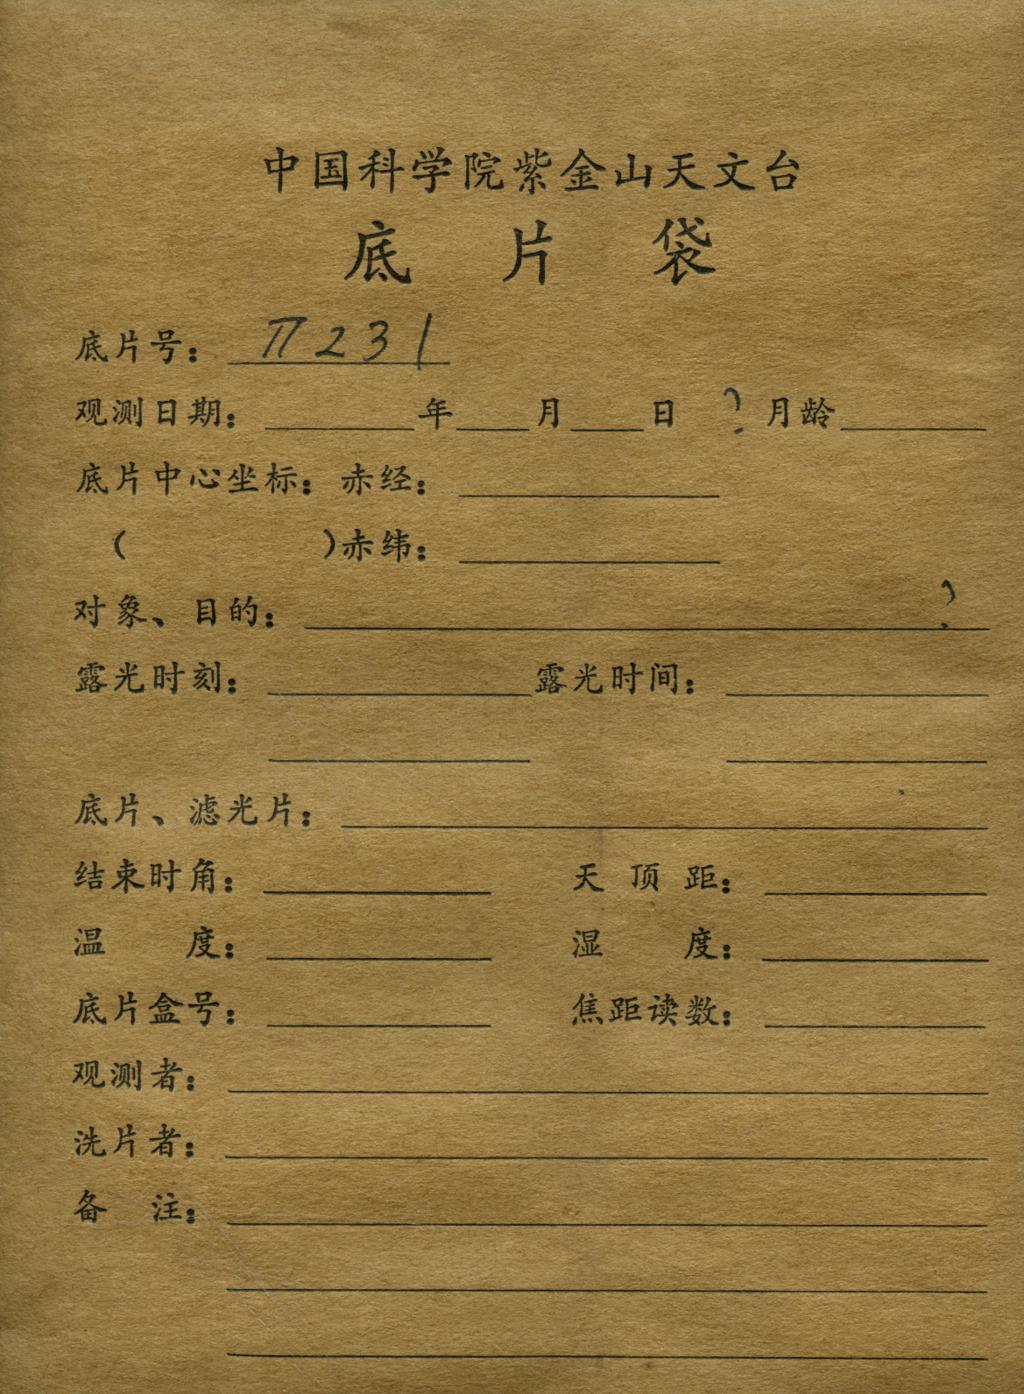 中国科学院紫金山天文台
底 片 袋
底片号： Π231
观测日期：______年___月___日 ? 月龄______
底片中心坐标：赤经：__________
（ ）赤纬：__________
对象、目的：__________ ?
露光时刻：__________露光时间：__________
底片、滤光片：__________
结束时角：__________ 天 顶 距：__________
温 度：__________ 湿 度：__________
底片盒号：__________ 焦距读数：__________
观测者：__________
洗片者：__________
备 注：__________